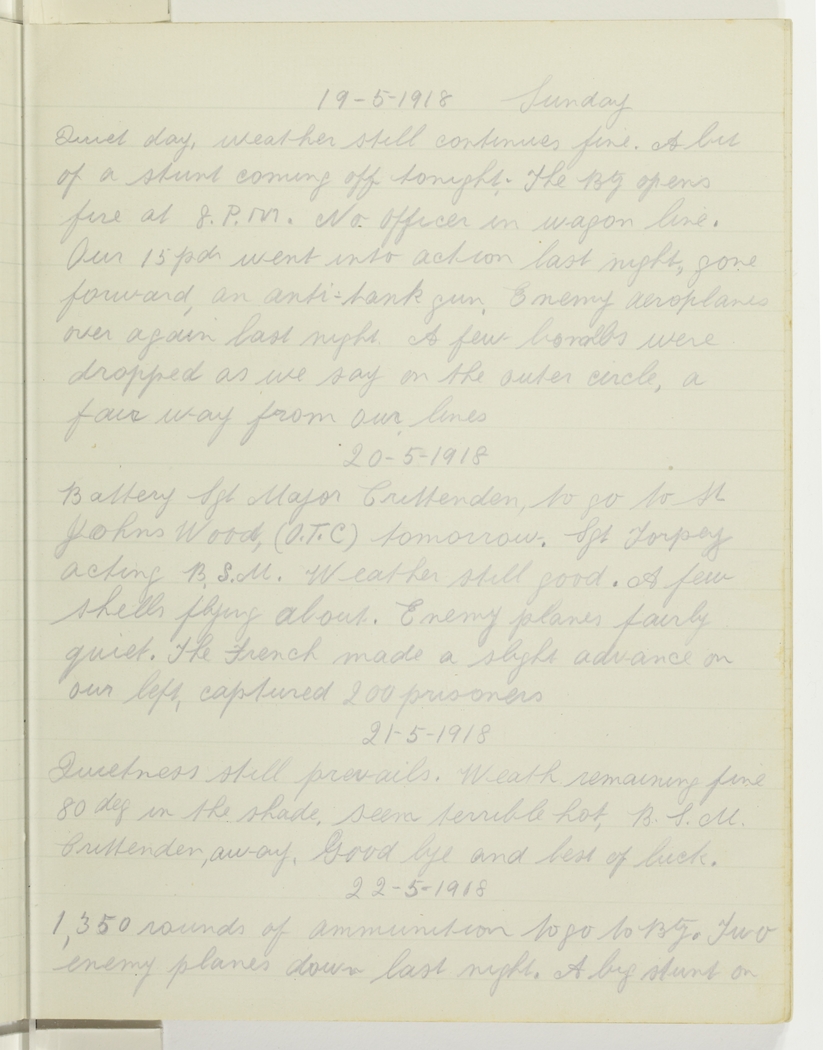 19-5-1918 Sunday
Quiet day, weather still continues fine. A bit
of a stunt coming off tonight. The Bty opens
fire at 8.P.M. No officer in wagon line.
Our 15 pdr went into action last night, gone
forward, an anti-tank gun, Enemy aeroplanes
over again last night. A few bombs were
dropped as we say on the outer circle, a
fair way from our lines
20-5-1918
Battery Sgt Major Crittenden, to go to St
Johns Wood, (O.T.C) tomorrow. Sgt Torpey
acting B.S.M. Weather still good. A few
shells flying about. Enemy planes fairly
quiet. The French made a slight advance on
our left, captured 200 prisoners
21-5-1918
Quietness still prevails. Weath remaining fine
80 deg in the shade, seem terrible hot, B.S.M.
Crittenden, away. Good bye and best of luck.
22-5-1918
1,350 rounds of ammunition to go to Bty. Two
enemy planes down last night. A big stunt on